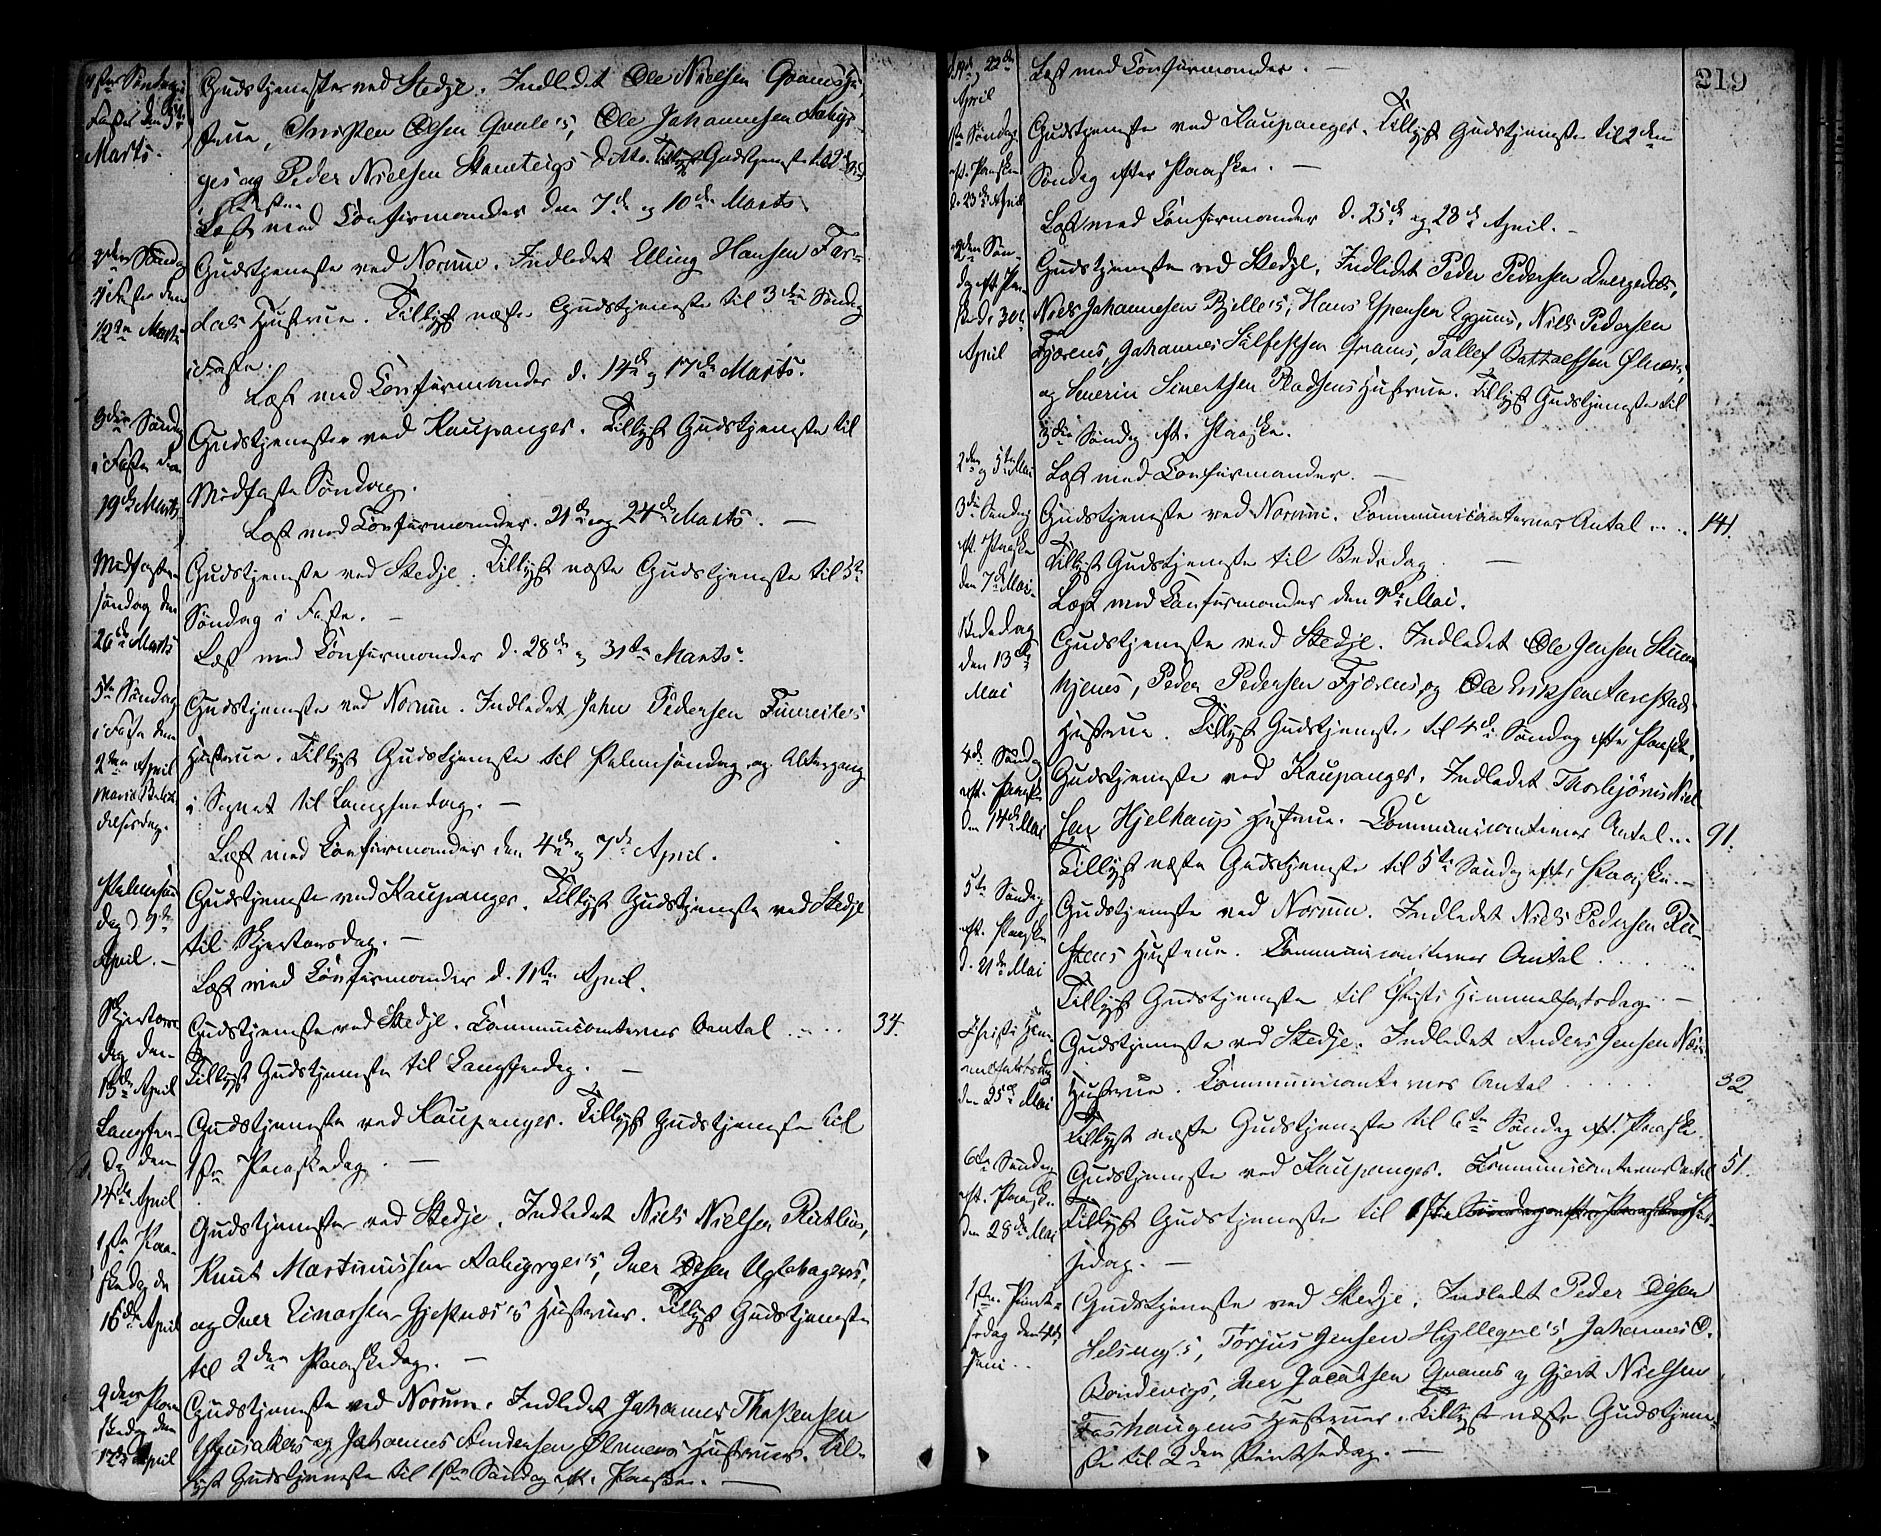 1ste Søndag i
Faste den 5te
Marts.
Gudstjeneste ved Stedje. Indledet Ole Nielsen
strue, Christen Olsen Qvale's, Ole Johannesen
ges og Peder Nielsen Stenteigs ditto. Tillyst Gudstjeneste til 2den Sd
i Fasten
Læst med Confirmander den 7de og 10de Marts.
2den Søndag
i Faste den
12te Marts
Gudstjeneste ved Norum. Indledet Elling Hansen Far-
dals Hustrue. Tillyst næste Gudstjeneste til 3die Søndag
i Faste.
Læst med Confirmander d. 14de og 17de Marts.
3die Søndag
i Faste den
19de Marts
Gudstjeneste ved Kaupanger. Tillyst Gudstjeneste til
Midfaste Søndag.
Læst med Confirmander. 21de og 24de Marts. —
Midfaste-
søndag den
26de Marts
Gudstjeneste ved Stedje. Tillyst næste Gudstjeneste til 5te
Søndag i Faste. —
Læst med Confirmander d. 28de og 31te Marts.
5te Søndag
i Faste den
2den April
Mariæ Bebu-
delsesdag.
Gudstjeneste ved Norum. Indledet John Pedersen Fimreite's
Hustrue. Tillyst Gudstjeneste til Palmesøndag og Altergang
i Sognet til Langfredag. —
Læst med Confirmander den 4de og 7de April.
Palmesøn
dag d 9de
April. —
Gudstjeneste ved Kaupanger. Tillyst Gudstjeneste ved Stedje
til Skjertorsdag. —
Læst med Confirmander d. 11te April.
Skjertors
dag den
13de April
Gudstjeneste ved Stedje. Communicanternes Antal .... 34.
Tillyst Gudstjeneste til Langfredag. —
Langfre-
dag den
14de April
Gudstjeneste ved Kaupanger. Tillyst Gudstjeneste til
1ste Paaskedag. —
1ste Paa-
skedag den
16de April
Gudstjeneste ved Stedje. Indledet Niels Nielsen Rutlins,
Knut Martinussen, Iver Olsen
og Iver Einarsen Gjestnæs's Hustruer. Tillyst Gudstjeneste
til 2den Paaskedag. —
2den Paa
skedag den
17de April
Gudstjeneste ved Norum. Indledet Johannes
og Johannes Andersen Hustruer. Til-
lyst Gudstjeneste til 1ste Søndag eft. Paaske. —
219
d. 19de og 22de
April
Læst med Confirmander. —
1ste Søndag
eft. Paaske
d. 23de April
Gudstjeneste ved Kaupanger. Tillyst Gudstjeneste til 2den
Søndag efter Paaske. —
Læst med Confirmander d. 25de og 28de April. —
2den Søn-
dag eft. Paa-
ske d. 30te
April
Gudstjeneste ved Stedje. Indledet Peder Pedersen Dvergedals,
Niels Johannesen Bjelle's, Hans Espensen Eggums, Niels Pedersen
Fjærens, Johannes Sylfestsen Qvams, Tollef
og Severin Sivertsen Pladsens Hustrue. Tillyst Gudstjeneste til
3die Søndag eft. Paaske.
2den og 5te Mai
Læst med Confirmander. —
3die Søndag
eft. Paaske
den 7de Mai.
Gudstjeneste ved Norum. Communicanternes Antal .... 141.
Tillyst Gudstjeneste til Bededag. —
Læst med Confirmander den 9de Mai.
Bededag
den 13de
Mai
Gudstjeneste ved Stedje. Indledet Ole Jensen
hjenes, Peder Pedersen Fjærens, og Ole Eriksen Aarestads
Hustrue. Tillyst Gudstjeneste til 4de Søndag efter Paaske.
4de Søndag
eft. Paaske
den 14de Mai
Gudstjeneste ved Kaupanger. Indledet Thorbjørn Niel
sen Hjelhaugs Hustrue. — Communicanternes Antal... 91.
Tillyst næste Gudstjeneste til 5te Søndag eft. Paaske. —
5te Søndag
eft. Paaske
d. 21de Mai
Gudstjeneste ved Norum. Indledet Niels Pedersen
Hustrue. Communicanternes Antal .....
Tillyst Gudstjeneste til Christi Himmelfartsdag. —
Christi Him-
melfartsdag
den 25de Mai
Gudstjeneste ved Stedje. Indledet Anders Jensen
Hustrue. Communicanternes Antal ..... 32
Tillyst næste Gudstjeneste til 6te Søndag eft. Paaske.
6te Søndag
eft. Paaske
den 28de Mai
Gudstjeneste ved Kaupanger. Communicanternes Antal 51.
Tillyst Gudstjeneste til 1ste Søndag efter Paaske Pint-
sedag. —
1ste Pint-
sedag den 4de
Juni..
Gudstjeneste ved Stedje. Indledet Peder Olsen
Torjus Jensen Johannes O.
Bondevigs, Iver Jacobsen Qvams og Gjert Nielsen
Hustruer. Tillyst næste Gudstjene-
ste til 2den Pintsedag. —